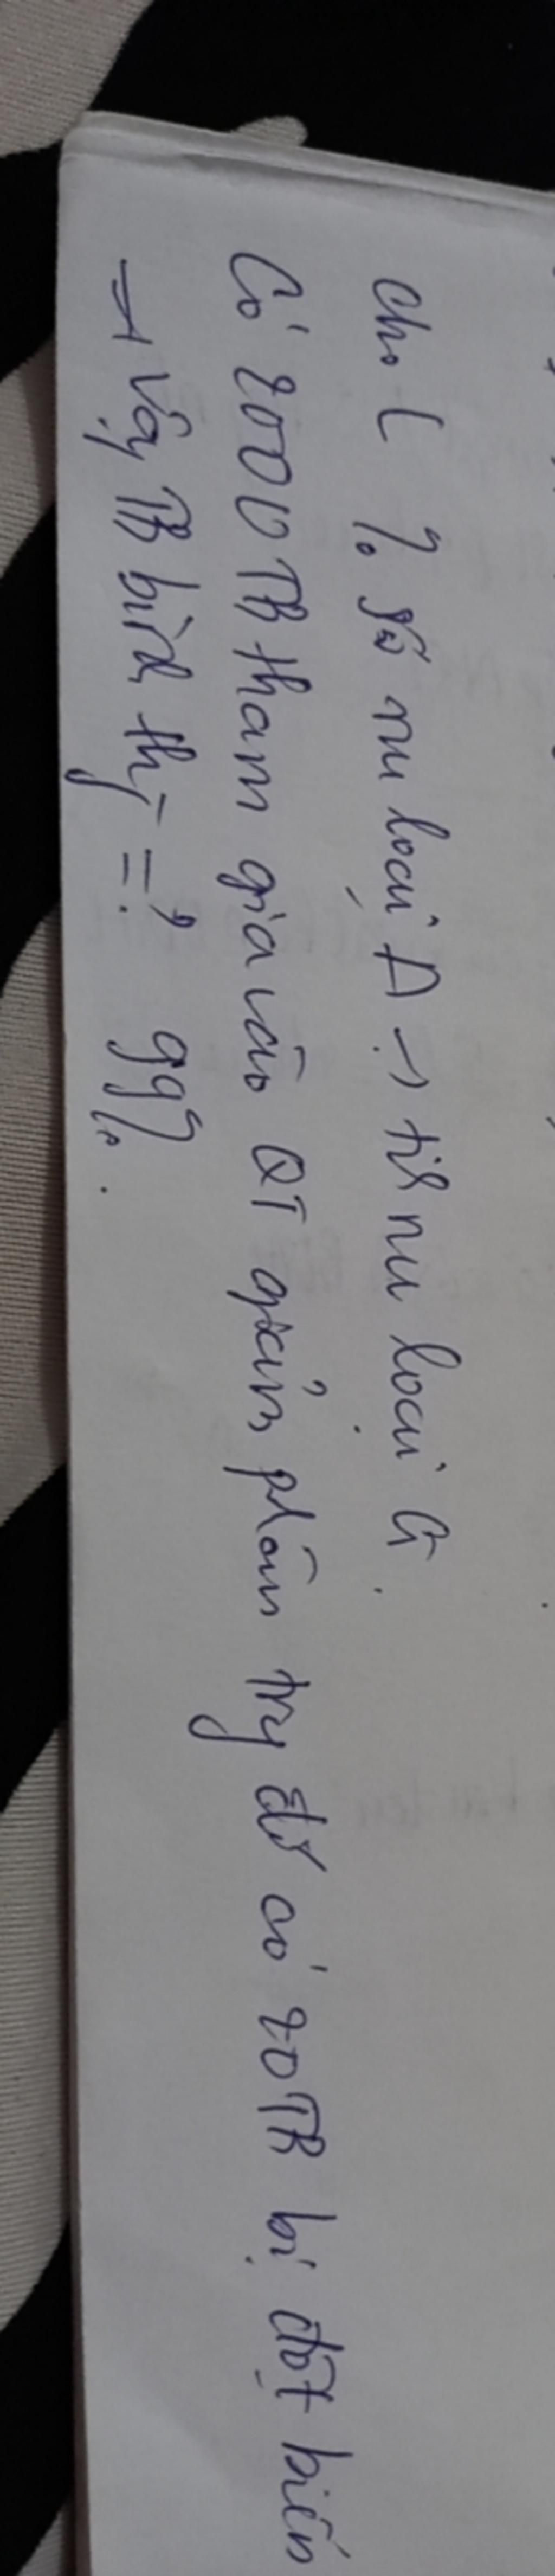 cho ( % số nu loại A → tìℓ nu loại G.
Có 2000 TB tham gia vào QT giảm phân try đó có 20 TB bị đột biến
→ Vậy TB bình thg =? 99%.